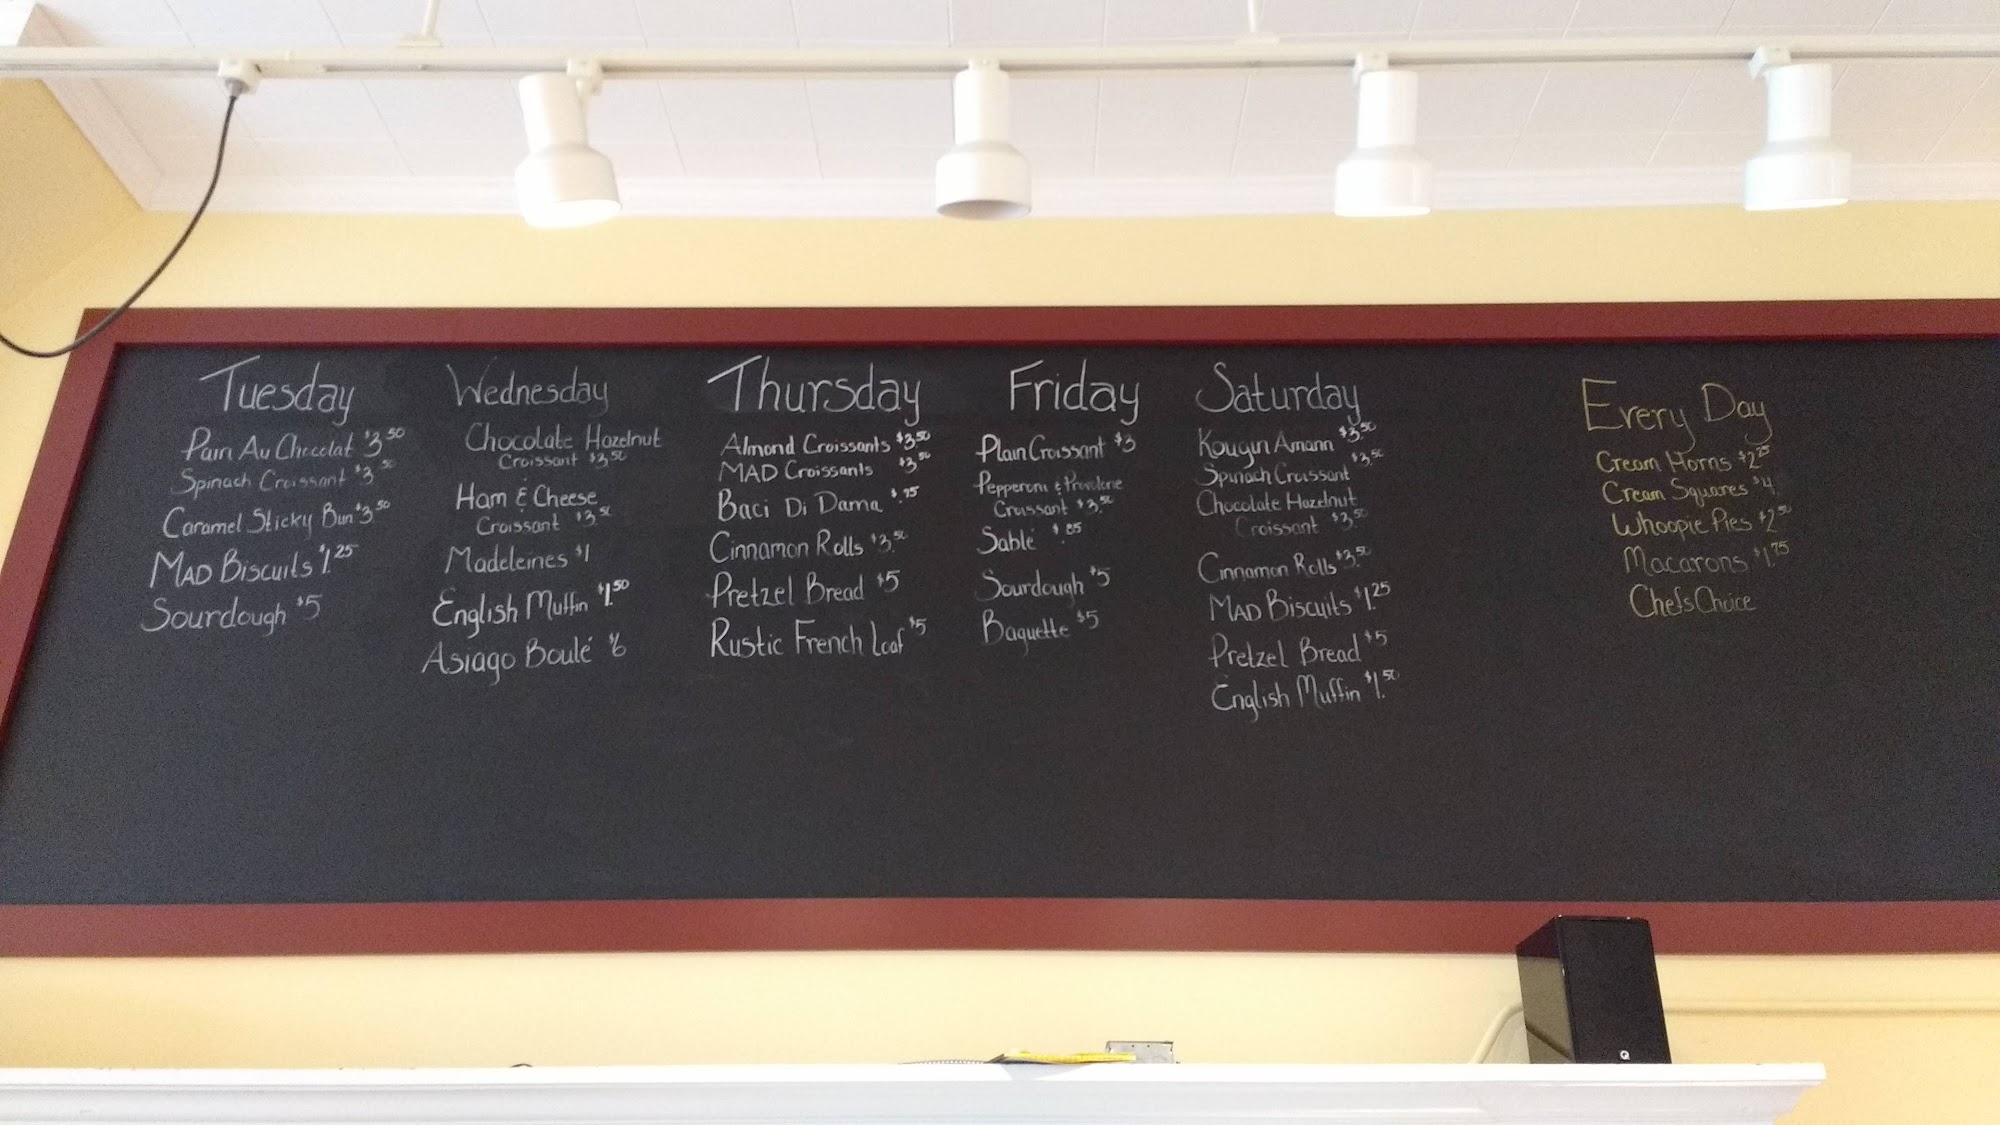 Tuesday
Pain Au Chocolat $3.50
Spinach Croissant $3.50
Caramel Sticky Bun $3.50
MAD Biscuits $1.25
Sourdough $5
Wednesday
Chocolate Hazelnut
Croissant $3.50
Ham & Cheese
Croissant $3.50
Madeleines $1
English Muffin $1.50
Asiago Boulé $6
Thursday
Almond Croissants $3.50
MAD Croissants $3.50
Baci Di Dama $.75
Cinnamon Rolls $3.50
Pretzel Bread $5
Rustic French Loaf $5
Friday
Plain Croissant $3
Pepperoni & Provolone
Croissant $3.50
Sablé $.85
Sourdough $5
Baguette $5
Saturday
Kougin Amann $3.50
Spinach Croissant $3.50
Chocolate Hazelnut
Croissant $3.50
Cinnamon Rolls $3.50
MAD Biscuits $1.25
Pretzel Bread $5
English Muffin $1.50
Every Day
Cream Horns $2.25
Cream Squares $4
Whoopie Pies $2.50
Macarons $1.75
Chefs Choice
Q